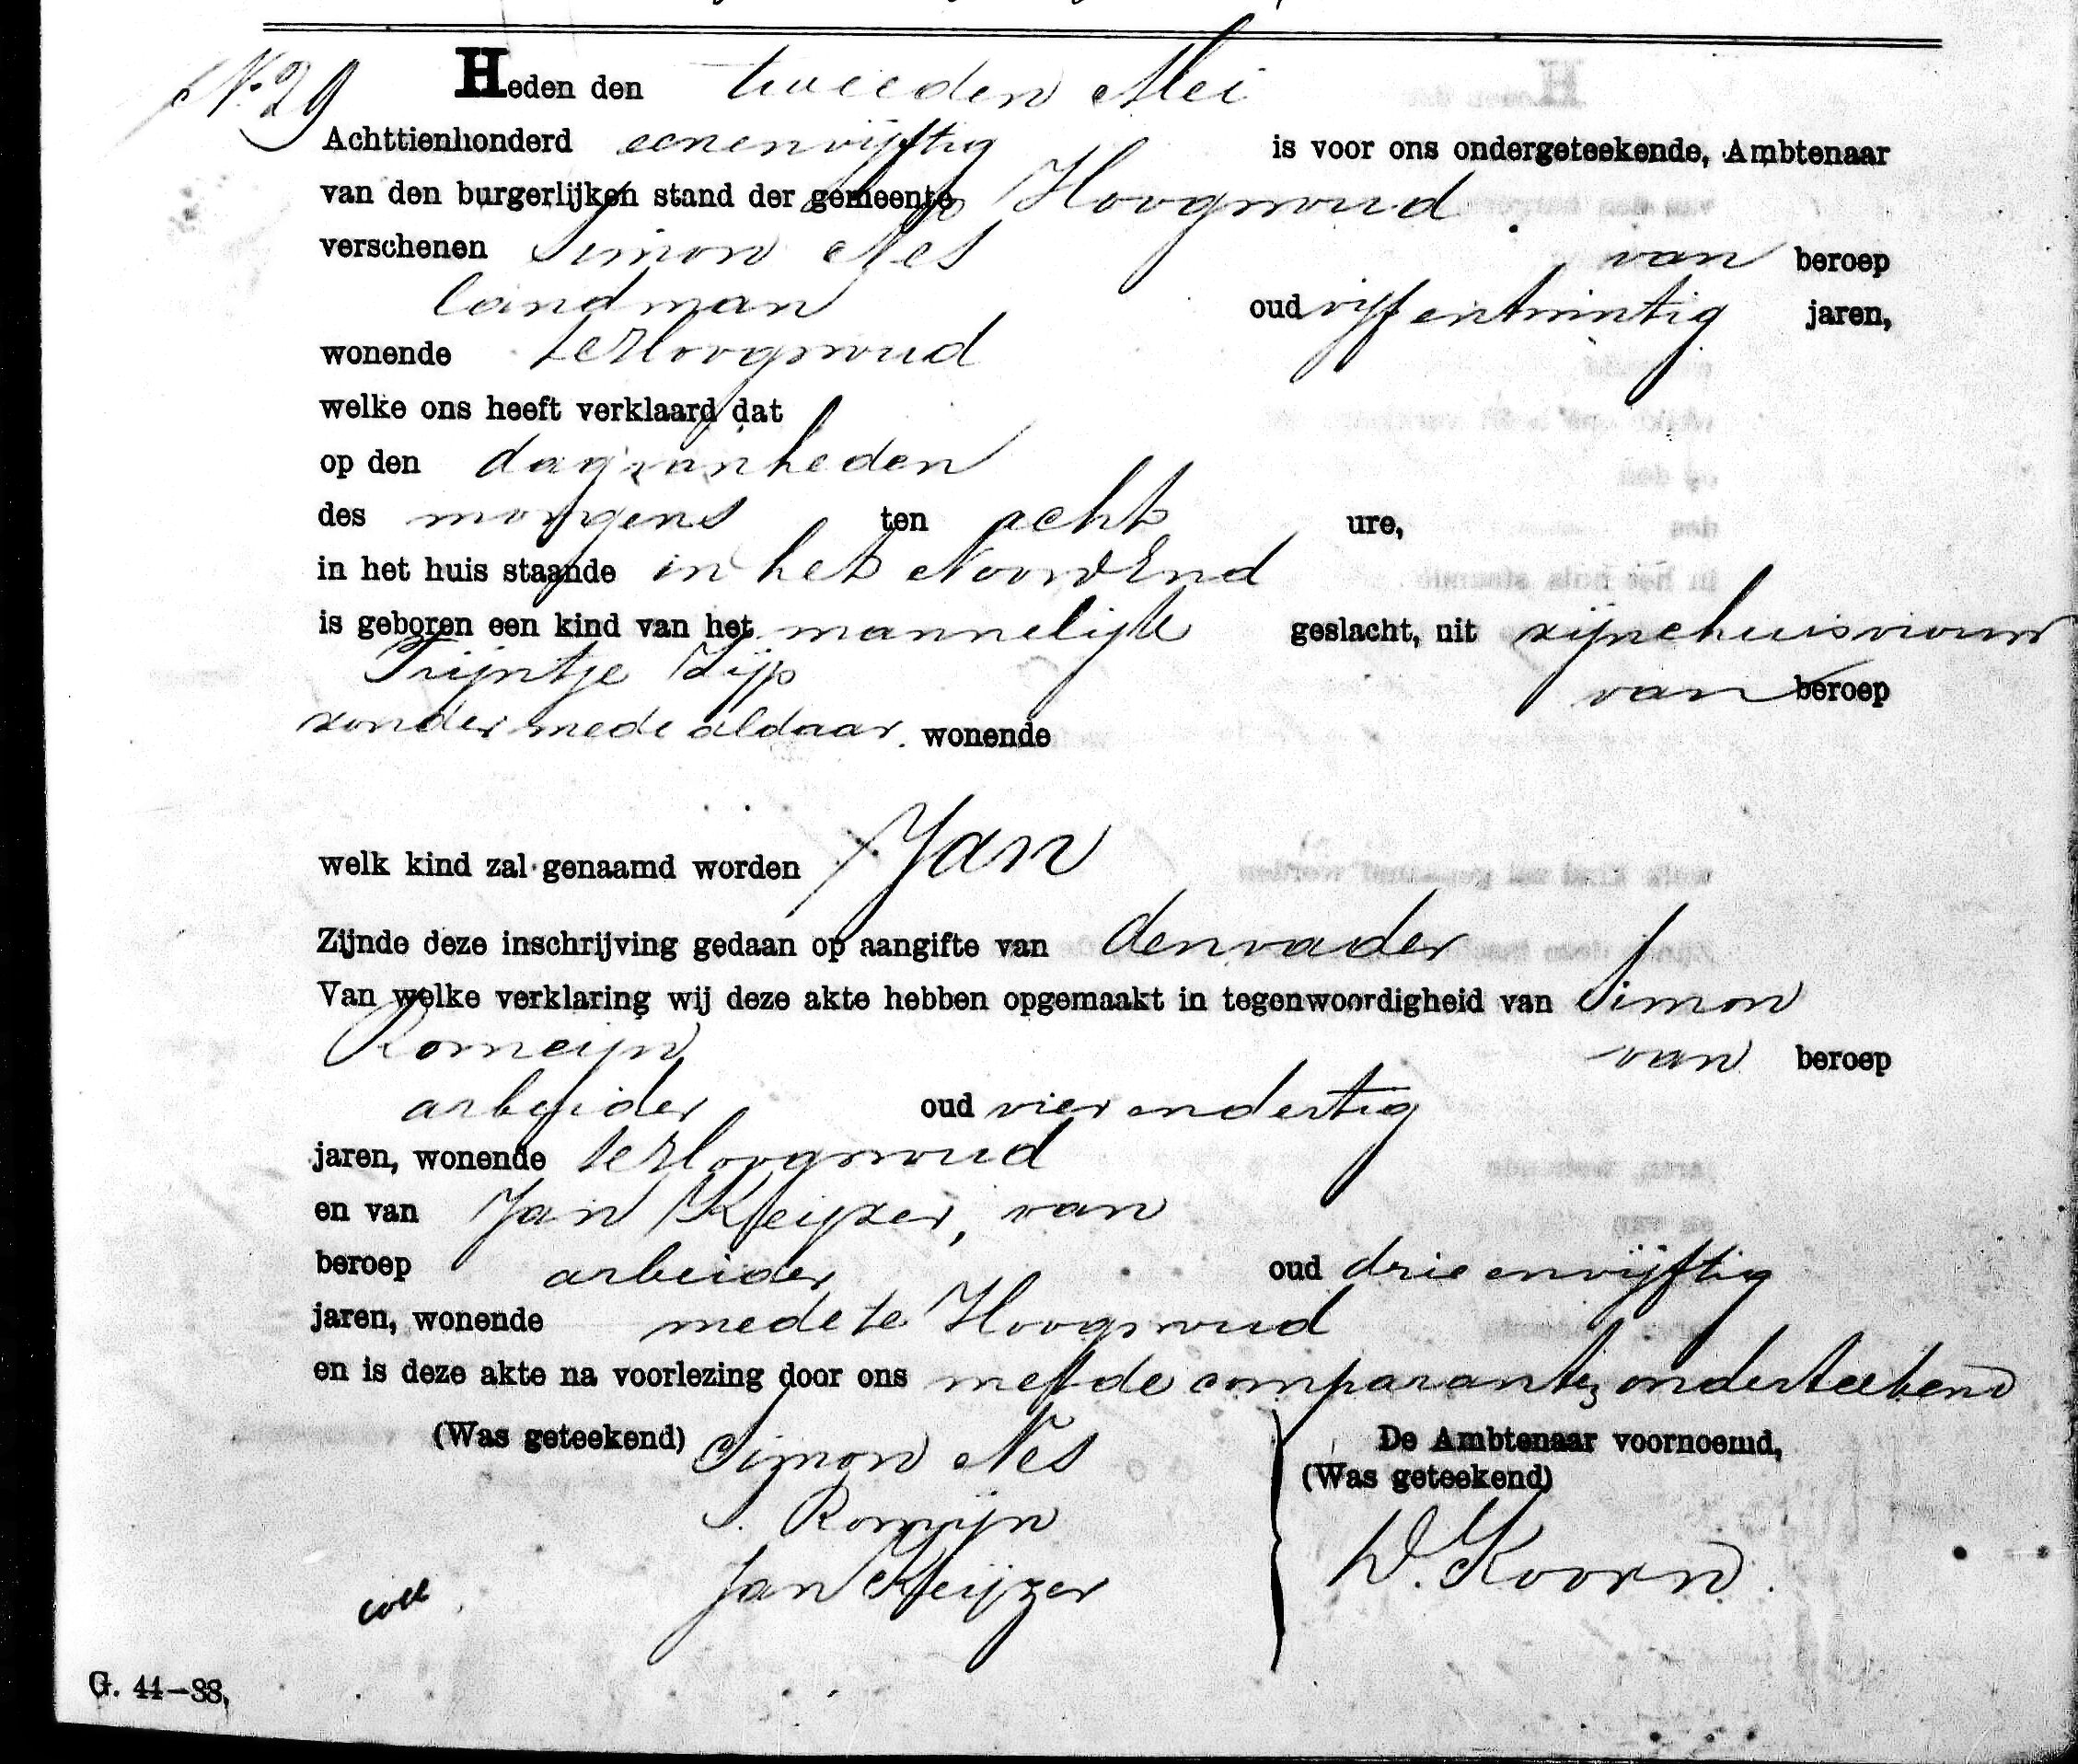 No 29 Heden den tweeden Mei
Achttienhonderd eenenvijftig is voor ons ondergeteekende, Ambtenaar
van den burgerlijken stand der gemeente Hoogwoud
verschenen Simon Nes van beroep
landman oud vijfentwintig jaren,
wonende te Hoogwoud
welke ons heeft verklaard dat
op den dag van heden
des morgens ten acht ure,
in het huis staande in het Noordend
is geboren een kind van het mannelijk geslacht, uit zijne huisvrouw
Trijntje Zijp van beroep
zonder mede aldaar wonende
welk kind zal genaamd worden Jan
Zijnde deze inschrijving gedaan op aangifte van den vader
Van welke verklaring wij deze akte hebben opgemaakt in tegenwoordigheid van Simon
Romeijn van beroep
arbeider oud vierendertig
jaren, wonende te Hoogwoud
en van Jan Kleijzer, van
beroep arbeider oud drieenvijftig
jaren, wonende mede te Hoogwoud
en is deze akte na voorlezing door ons met de comparanten onderteekend
(Was geteekend) Simon Nes De Ambtenaar voornoemd,
(Was geteekend)
S. Romijn
W. Koorn.
Jan Kleijzer
coll
G. 44–88,